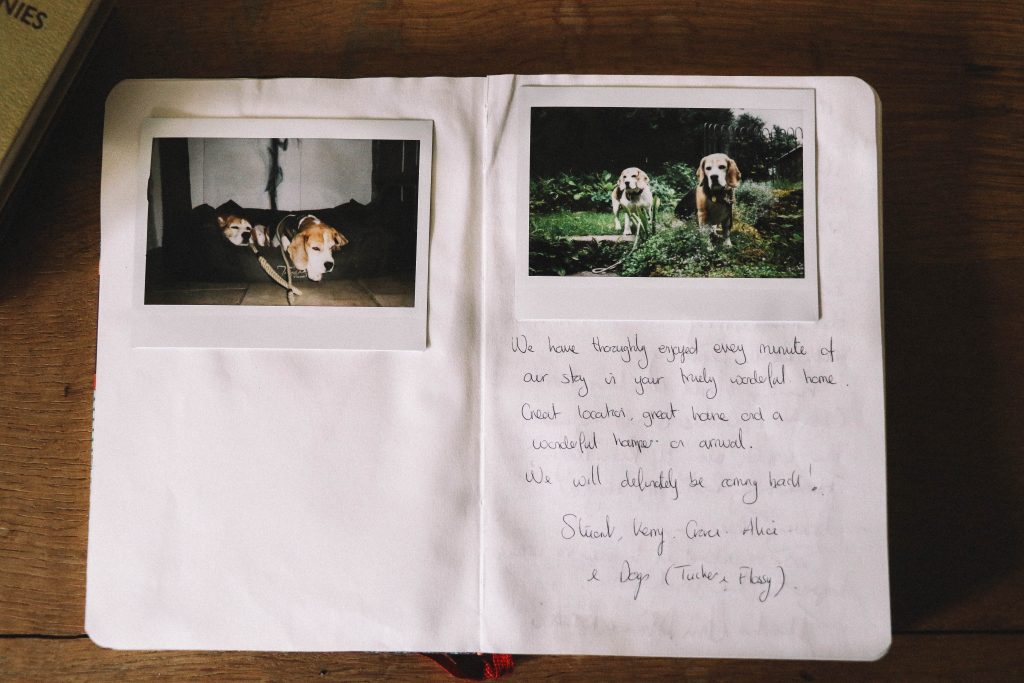 NIES
We have thoroughly enjoyed every minute of
our stay in your truely wonderful home.
Great location, great home and a
wonderful hamper on arrival.
We will definately be coming back!
Stuart, Kerry, Alicia
& Dogs (Tucker & Flossy).